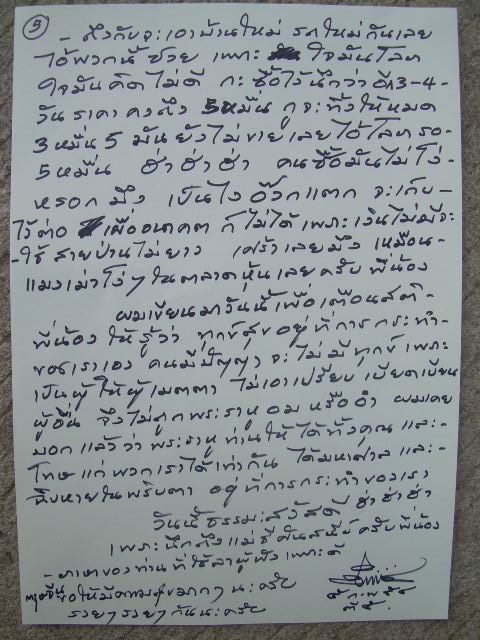 5
- ถึงกับจะเอาบ้านใหม่ รถใหม่กันเลย
ไอ้พวกนี้ซวย เพราะ ใจมันโลภ
ใจมันคิดไม่ดี กะซื้อไว้นึกว่าอีก 3-4-
วัน ราคาคงถึง 5 หมื่น กูจะทิ้งให้หมด
3 หมื่น 5 มันยังไม่ขายเลย ไอ้โลภ รอ-
5 หมื่น ฮ่า ฮ่า ฮ่า คนซื้อมันไม่โง่-
หรอกมึง เป็นไง อ๊วกแตก จะเก็บ-
ไว้ต่อ เผื่ออนาคต ก็ไม่ได้ เพราะเงินไม่มีจะ
-ใช้ สายป่านไม่ยาว เศร้าเลยมึง เหมือน-
แมงเม่าโง่ๆ ในตลาดหุ้นเลยครับพี่น้อง
ผมเขียนมาวันนี้เพื่อเตือนสติ-
พี่น้อง ให้รู้ว่า ทุกข์สุขอยู่ที่การกระทำ
ของเราเอง คนมีปัญญาจะไม่มีทุกข์ เพราะ
เป็นผู้ให้ผู้เมตตา ไม่เอาเปรียบ เบียดเบียน
ผู้อื่น จึงไม่ถูกพระราหูอมหรืออำ ผมเคย
บอกแล้วว่าพระราหูท่านให้ได้ทั้งคุณและ-
โทษแก่พวกเราได้เท่ากัน ได้มหาศาลและ-
ฉิบหายในพริบตา อยู่ที่การกระทำของเรา
วันนี้ธรรมะสวัสดี ฮ่า ฮ่า ฮ่า
เพราะนึกถึงแม่ชีศันสนีย์ครับพี่น้อง
- ภาษาของท่านที่ใช้ลาผู้ฟัง เพราะดี
ขอให้มีความสุขมากๆ นะครับ
รวยๆ รวยๆ กันนะครับ